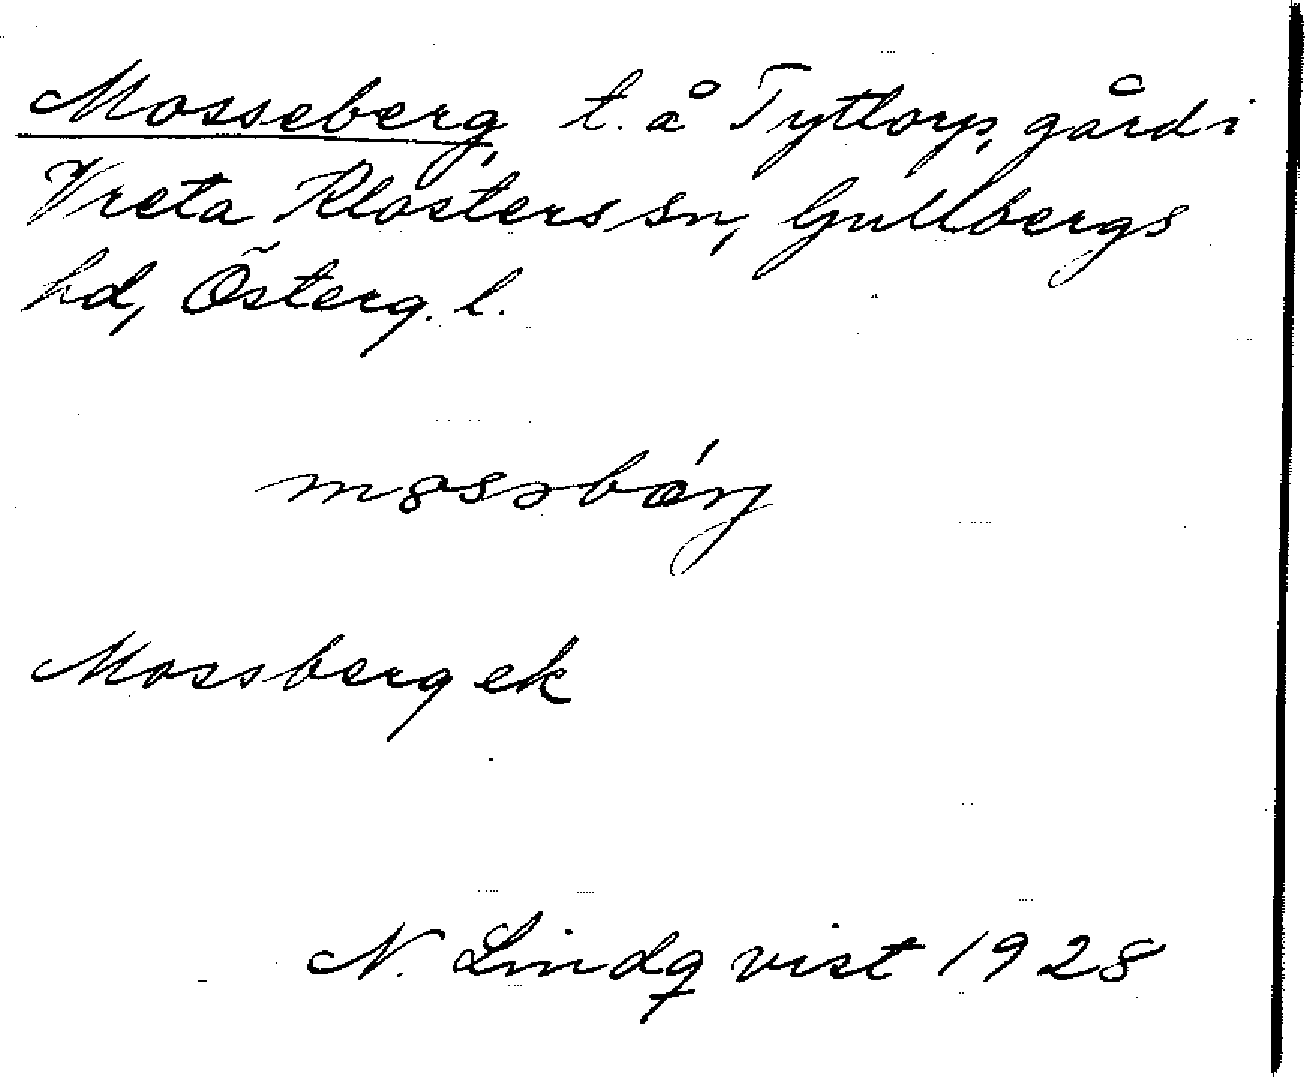 Mosseberg, t. å Tyttorp, gård i
Vreta Klosters sn, Gullbergs
hd, Österg. l.
Mossberg ek
N. Lindqvist 1928